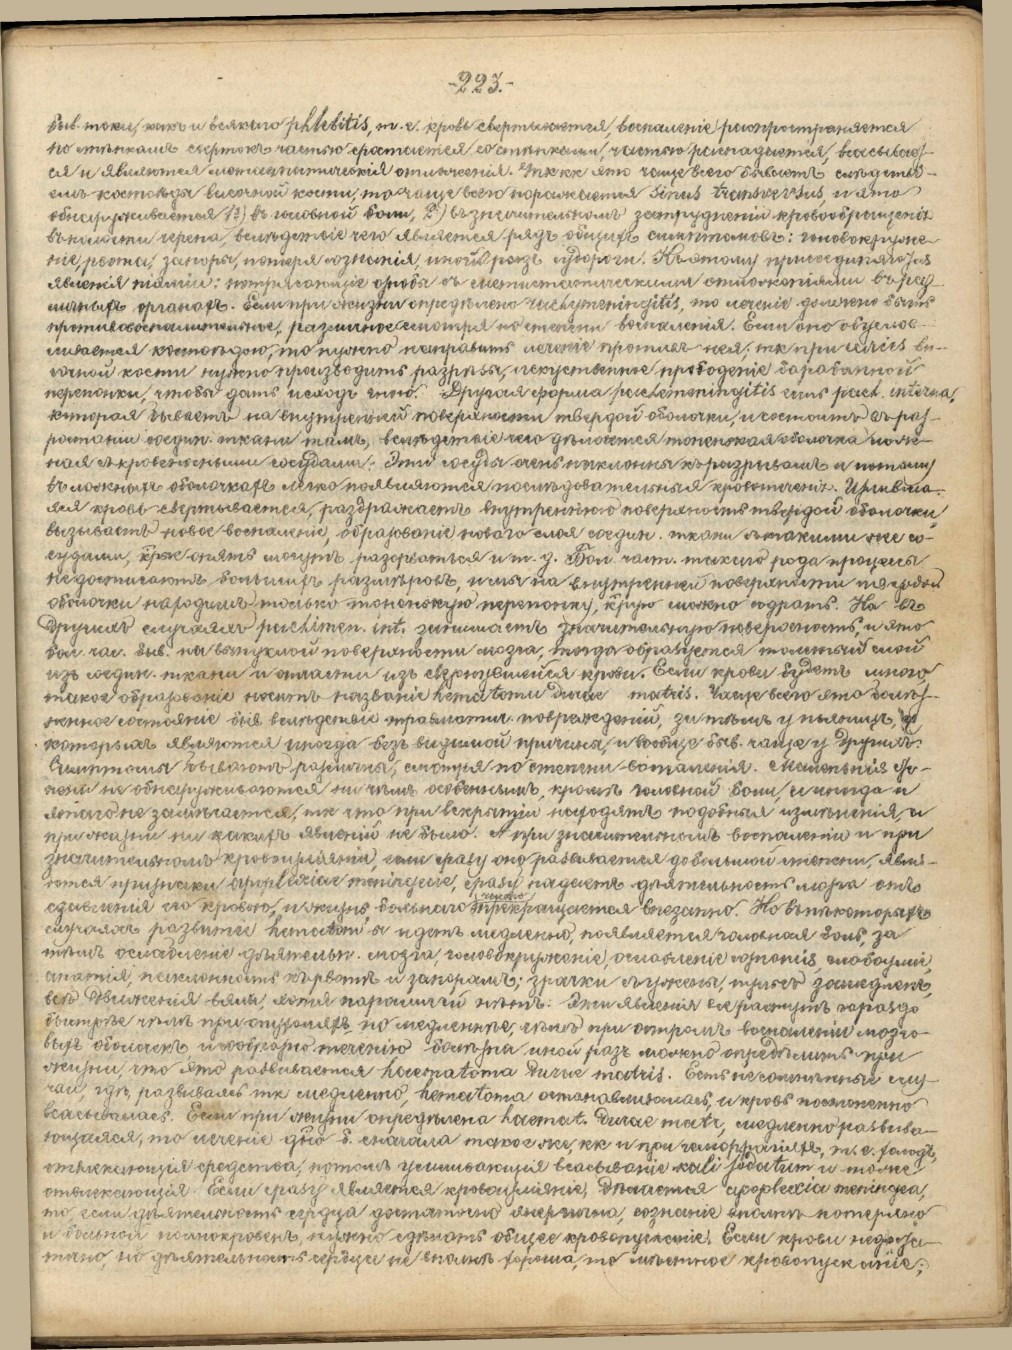 -223.-
быв. таки, какъ и всякаго phlebitis, т. е. кровь свертывается, воспаленіе распространяется
по стѣнкамъ свертокъ частью сростается со стѣнками, частью распадается, всасывает-
ся и являются метастатическія отложенія. Так как это чаще всего бываетъ слѣдстві-
емъ костоѣды височной кости, то чаще всего поражается Sinus transversus и это
обнаруживается 1) въ головной боли, 2) въ значительномъ затрудненіи кровообращенія
въ полости черепа, вслѣдствіе чего является рядъ общихъ симптомовъ: головокруже-
ніе, рвота, запоры, потеря сознанія, иной разъ судороги. Къ этому присоединяются
явленія піэміи: потрясающіе ознобы съ метастатическими отложеніями въ раз-
личныхъ органахъ. Если при жизни опредѣлено pachymeningitis, то леченіе должно быть
противовоспалительное, различное смотря по степени воспаленія. Если оно обуслов-
ливается костоѣдою, то нужно направить леченіе противъ нея; тк при caries ви-
сочной кости нужно производить разрѣзы, искуственное прободеніе барабанной
перепонки, чтобы дать исходъ гною. Другая форма pachimeningitis есть pach. interna,
которая бываетъ на внутренней поверхности твердой оболочки, и состоитъ въ раз-
ростаніи соедин. ткани тамъ, вслѣдствіе чего дѣлается тоненькая оболочка лож-
ная съ кровеносными сосудами. Эти сосуды очень наклонны къ разрывамъ и потому
въ ложныхъ оболочкахъ легко появляются послѣдовательныя кровотеченія. Излившая-
яся кровь свертывается, раздражаетъ внутреннюю поверхность твердой оболочки,
вызываетъ новое воспаленіе, образованіе новаго слоя соедин. ткани съ такими же со-
судами, кѣрые опять могутъ разорваться и т. д. Бол. част. такого рода процессы
не достигаютъ большихъ размѣровъ, и мы на внутренней поверхности твердой
оболочки находимъ только тоненькую перепонку, кѣрую можно содрать. Но въ
другихъ случаяхъ pachimen. int. занимаетъ значительную поверхность, и это
бол. час. быв. на выпуклой поверхности мозга, тогда образуется толстый слой
изъ соедин. ткани и отчасти изъ свернувшейся крови. Если крови будетъ много
такое образованіе носитъ названіе hematoma durae matris. Чаще всего это болѣз-
ненное состояніе быв. вслѣдствіе травматич. поврежденій, затѣмъ у пьяницъ, у
которыхъ является иногда безъ видимой причины, и вообще быв. чаще у другихъ.
Симптомы бываютъ различны, смотря по степени воспаленія. Маленькія
не обнаруживаются ни чѣмъ особеннымъ, кромѣ головной боли, а иногда и
этого не замѣчается, тк что при вскрытіи находятъ подобныя измѣненія, а
при жизни ни какихъ явленій не было. А при значительномъ воспаленіи и при
значительномъ кровоизліяніи, если сразу оно развивается до большой степени, явля-
ются признаки apoplexiae meningeae, сразу падаетъ дѣятельность мозга отъ
сдавленія его кровью, и жизнь больного часто прекращается внезапно. Но въ нѣкоторыхъ
случаяхъ развитіе hematom'ы идетъ медленно, появляется головная боль, за
тѣмъ ослабленіе дѣятельн. мозга, головокруженіе, ослабленіе сознанія, слабоуміе,
апатія, наклонность къ рвотѣ и запорамъ; зрачки съужены, пульсъ замедленъ,
всѣ движенія вялы, хотя параличей нѣтъ. Эти явленія все растутъ гораздо
быстрѣе чѣмъ при опухоляхъ, но медленнѣе, чѣмъ при остромъ воспаленіи мозго-
выхъ оболочекъ и сообразно теченію болѣзни иной разъ можно опредѣлить при
жизни, что это развивается haematoma durae matris. Есть несомнѣнные слу-
чаи, гдѣ, развиваясь тк медленно, hematoma останавливалась, и кровь постепенно
всасывалась. Если при жизни опредѣлена haemat. durae matr., медленно развива-
ющаяся, то леченіе д.но б. сначала такое же, кк и при геморрагіяхъ, т. е. холодъ,
отвлекающія средства, потомъ усиливающія всасываніе kali jodatum и тоже
отвлекающія. Если сразу является кровоизліяніе, дѣлается apoplexia meningea,
то, если дѣятельность сердца достаточно энергична, сознаніе вполнѣ потеряно
и больной полнокровенъ, нужно сдѣлать общее кровопусканіе. Если крови недоста-
точно, но дѣятельность сердца не вполнѣ хороша, то мѣстное кровопусканіе;